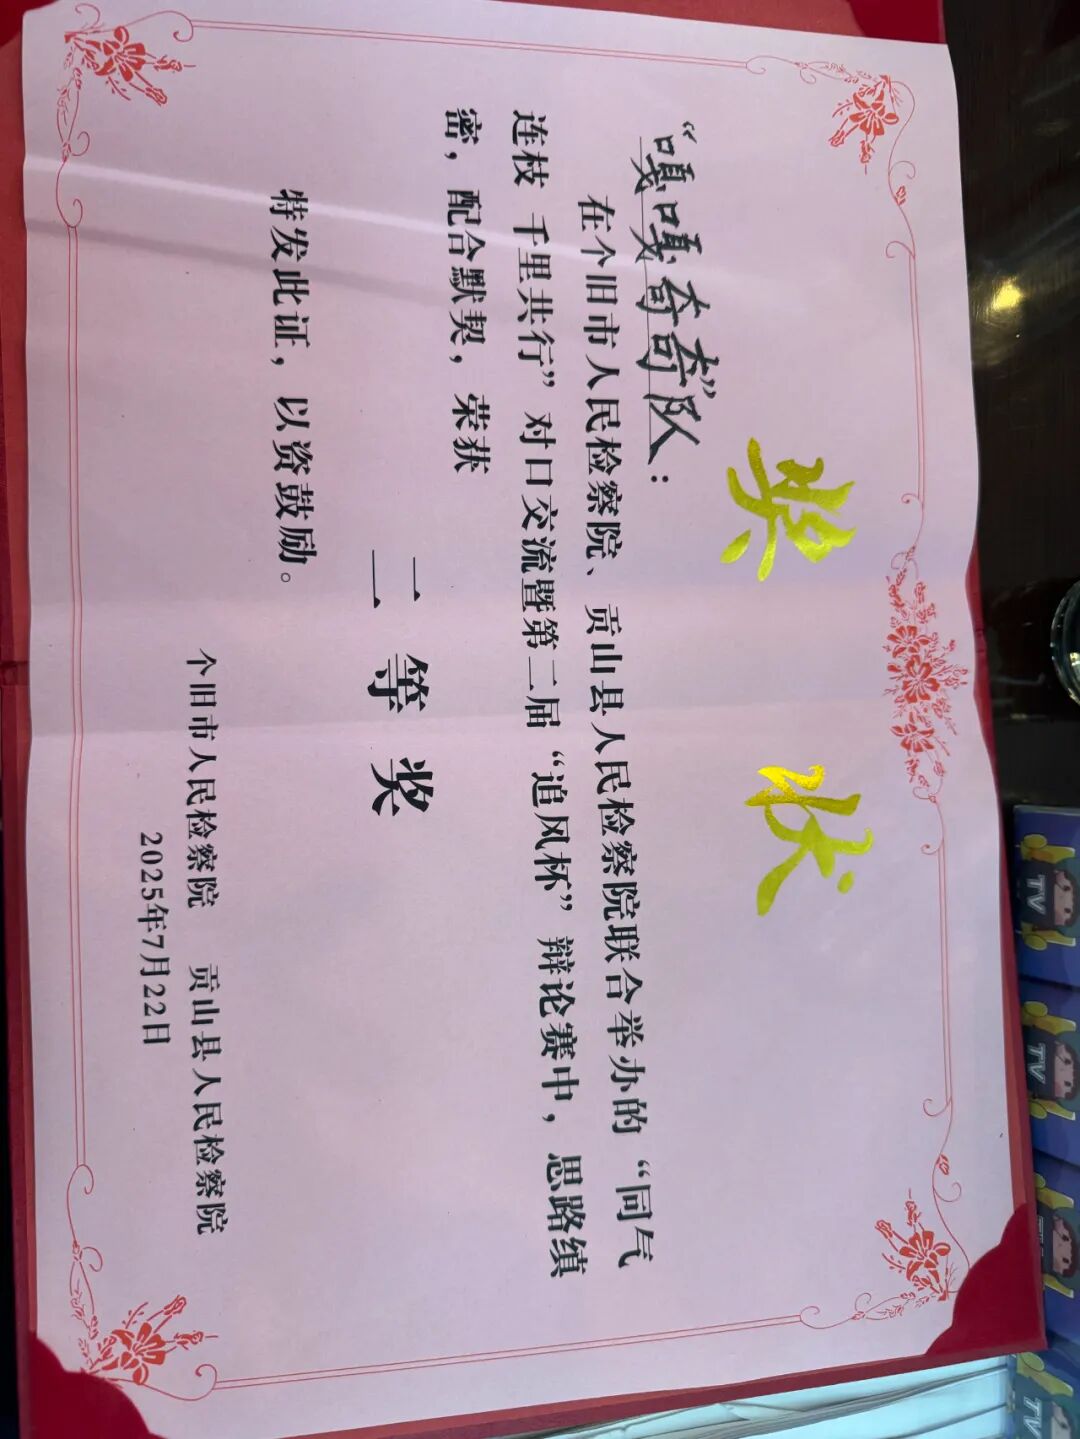 奖状
“嘎嘎奇奇”队：
在个旧市人民检察院、贡山县人民检察院联合举办的“同气
连枝 千里共行”对口交流暨第二届“追风杯”辩论赛中，思路缜
密，配合默契，荣获
二等奖
特发此证，以资鼓励。
个旧市人民检察院 贡山县人民检察院
2025年7月22日
TV
TV
TV